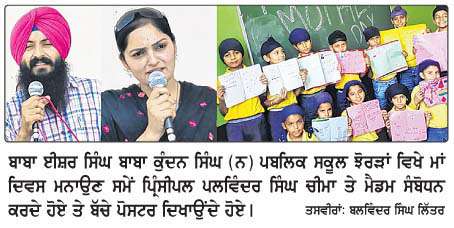 MOTHE
DAY
ਬਾਬਾ ਈਸ਼ਰ ਸਿੰਘ ਬਾਬਾ ਕੁੰਦਨ ਸਿੰਘ (ਨ) ਪਬਲਿਕ ਸਕੂਲ ਝੋਰੜਾਂ ਵਿਖੇ ਮਾਂ
ਦਿਵਸ ਮਨਾਉਣ ਸਮੇਂ ਪ੍ਰਿੰਸੀਪਲ ਪਲਵਿੰਦਰ ਸਿੰਘ ਚੀਮਾ ਤੇ ਮੈਡਮ ਸੰਬੋਧਨ
ਕਰਦੇ ਹੋਏ ਤੇ ਬੱਚੇ ਪੋਸਟਰ ਦਿਖਾਉਂਦੇ ਹੋਏ।
ਤਸਵੀਰਾਂ: ਬਲਵਿੰਦਰ ਸਿੰਘ ਲਿੱਤਰ